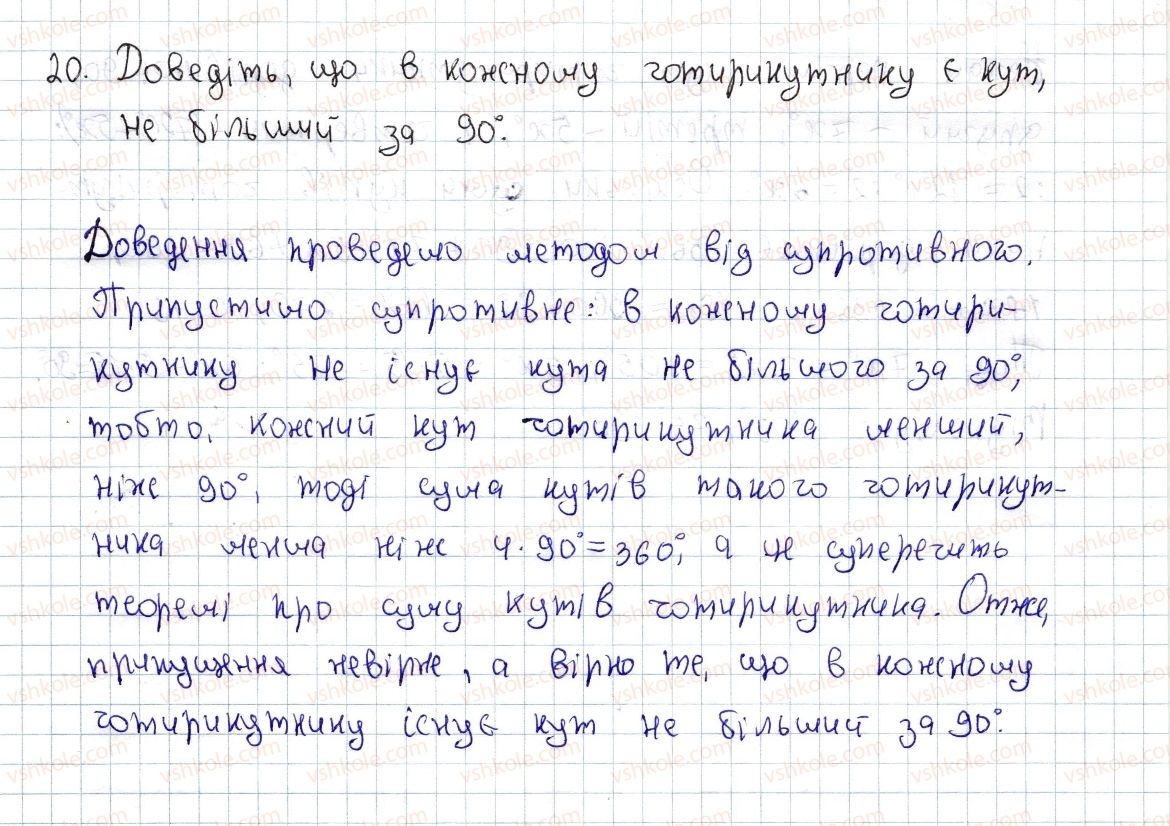 20. Доведіть, що в кожному чотирикутнику є кут,
не більший за 90°.
Доведення проведемо методом від супротивного.
Припустимо супротивне: в кожному чотири-
кутнику не існує кута не більшого за 90°,
тобто, кожний кут чотирикутника менший,
ніж 90°, тоді сума кутів такого чотирикут-
ника менша ніж 4·90°=360°, а це суперечить
теоремі про суму кутів чотирикутника. Отже,
припущення невірне, а вірно те, що в кожному
чотирикутнику існує кут не більший за 90°.